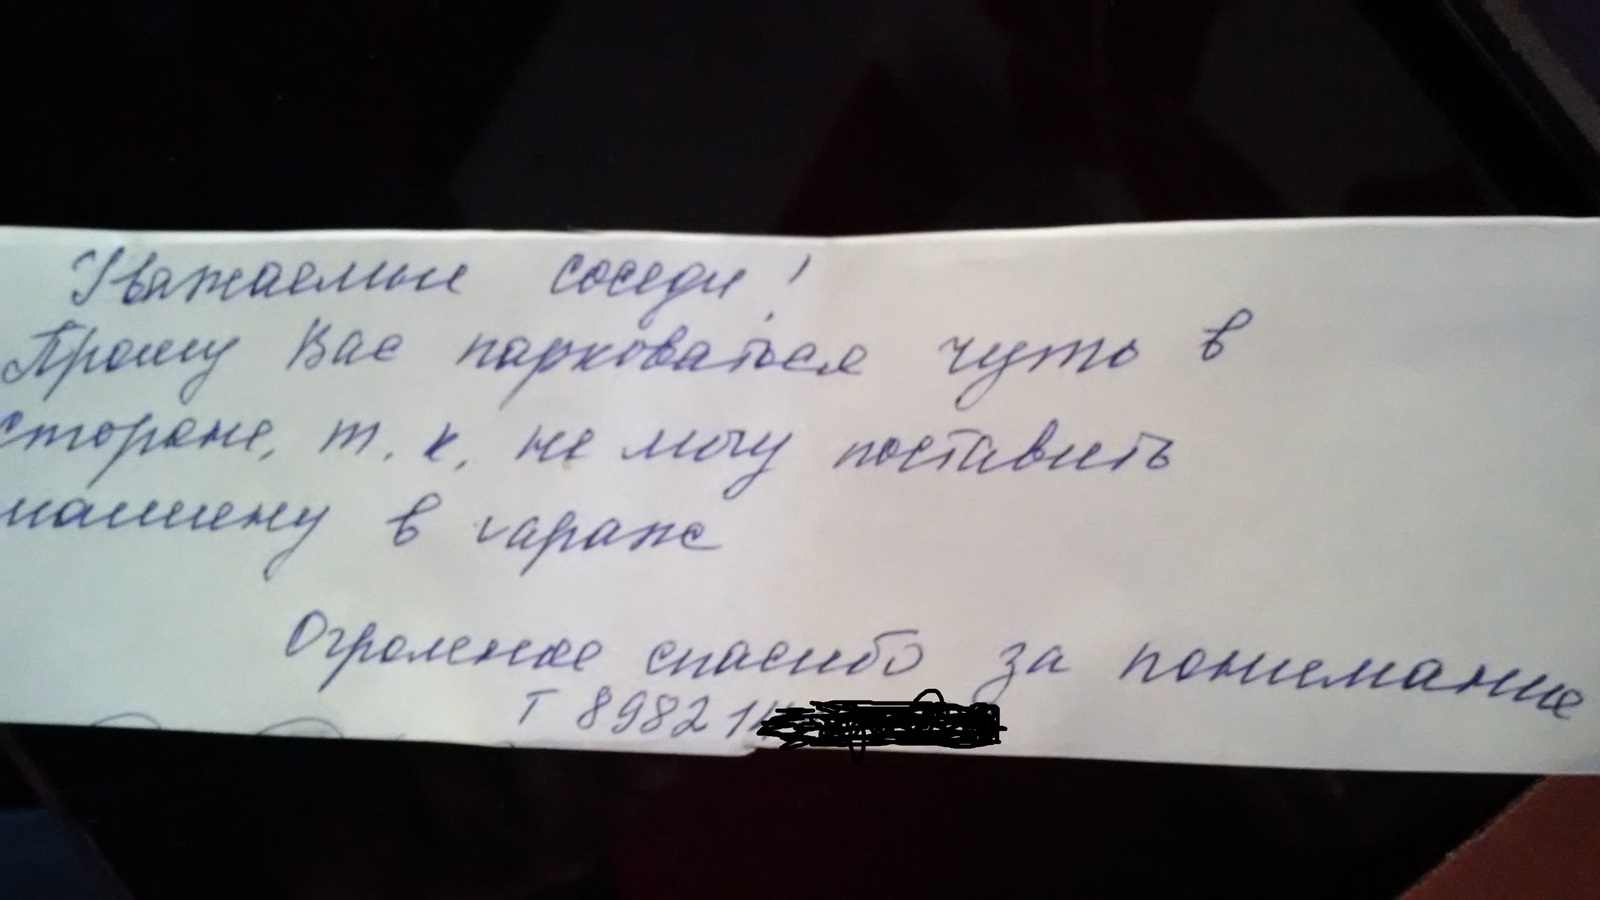 Уважаемые соседи!
Прошу Вас парковаться чуть в
стороне, т.к. не могу поставить
машину в гараж
Огромное спасибо за понимание
т 8982 14